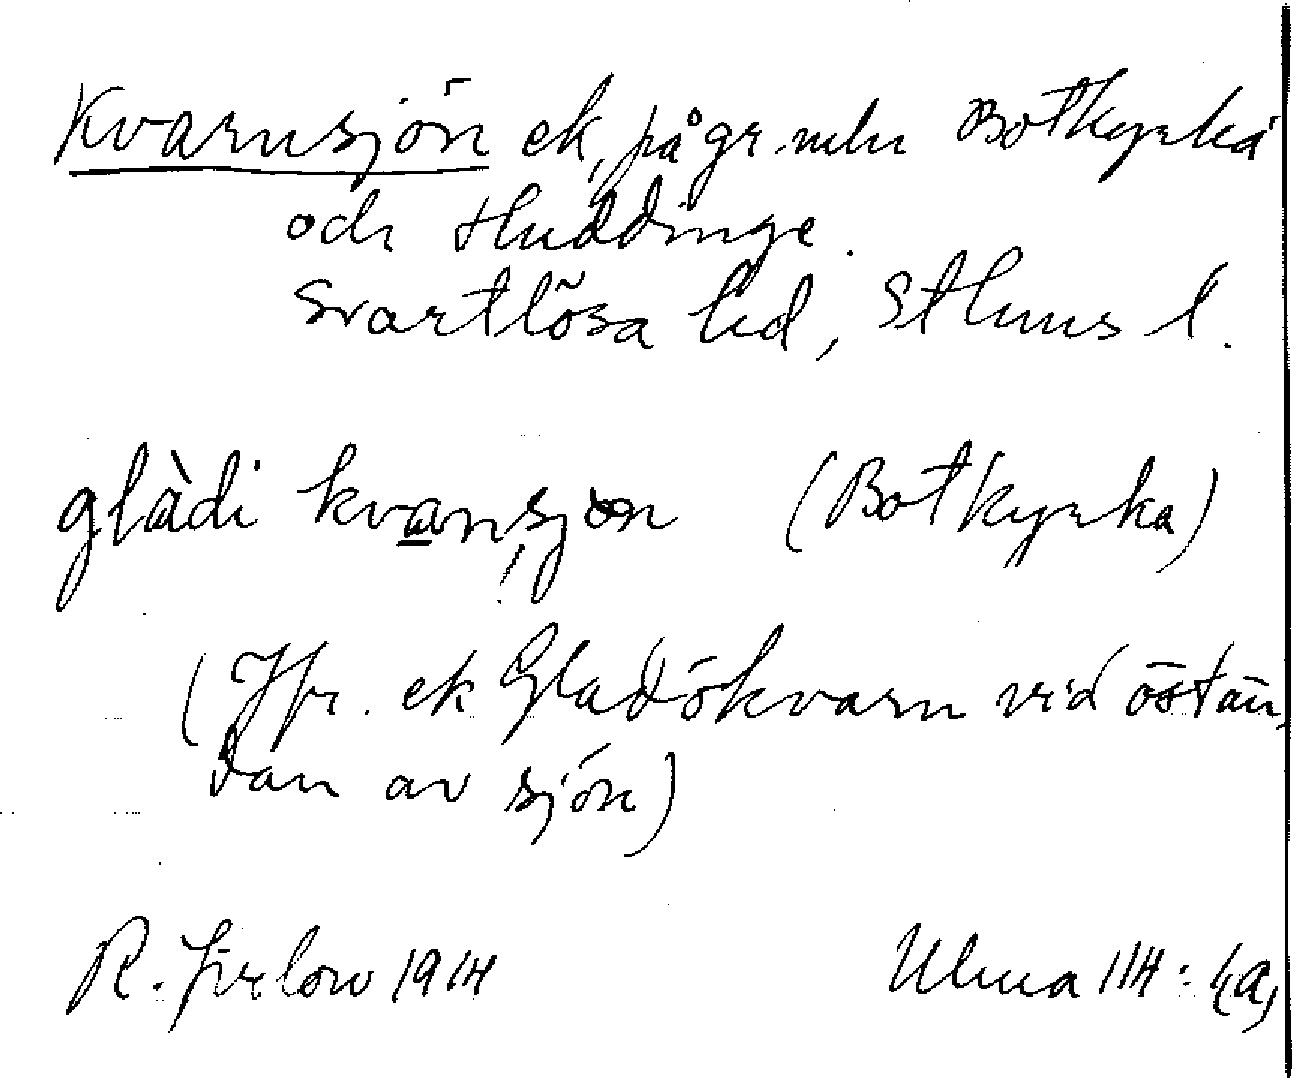 Kvarnsjön ek, på gr. mln Botkyrka
och Huddinge.
Svartlösa hd, Sthms l.
glàdi kvansjon (Botkyrka)
(Jfr. ek Gladökvarn vid östän
dan av sjön)
R. Jirlow 1914
Uluma 114: